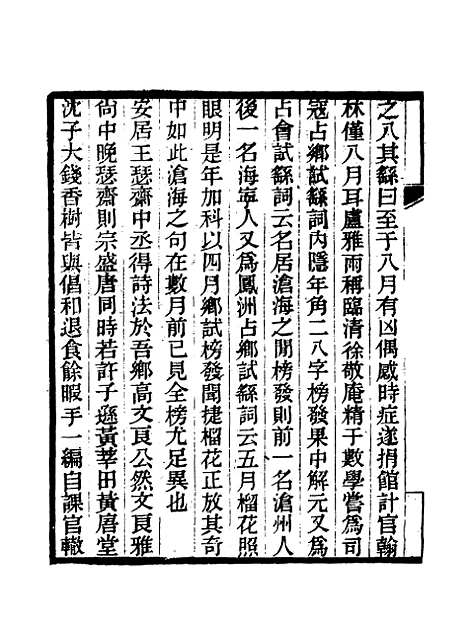 之八其繇曰至于八月有凶偶感時症遂捐館計官翰
林僅八月耳盧雅雨稱臨清徐敬庵精于數學嘗爲司
寇占鄉試繇詞內隱年角二八字榜發果中解元又爲
占會試繇詞云名居滄海之閒榜發則前一名滄州人
後一名海寧人又爲鳳洲占鄉試繇詞云五月榴花照
眼明是年加科以四月鄉試榜發聞捷榴花正放其奇
中如此滄海之句在數月前已見全榜尤足異也
安居王瑟齋中丞得詩法於吾鄉高文良公然文良雅
尙中晚瑟齋則宗盛唐同時若許子遜黃莘田黃唐堂
沈子大錢香樹皆與倡和退食餘暇手一編自課官轍